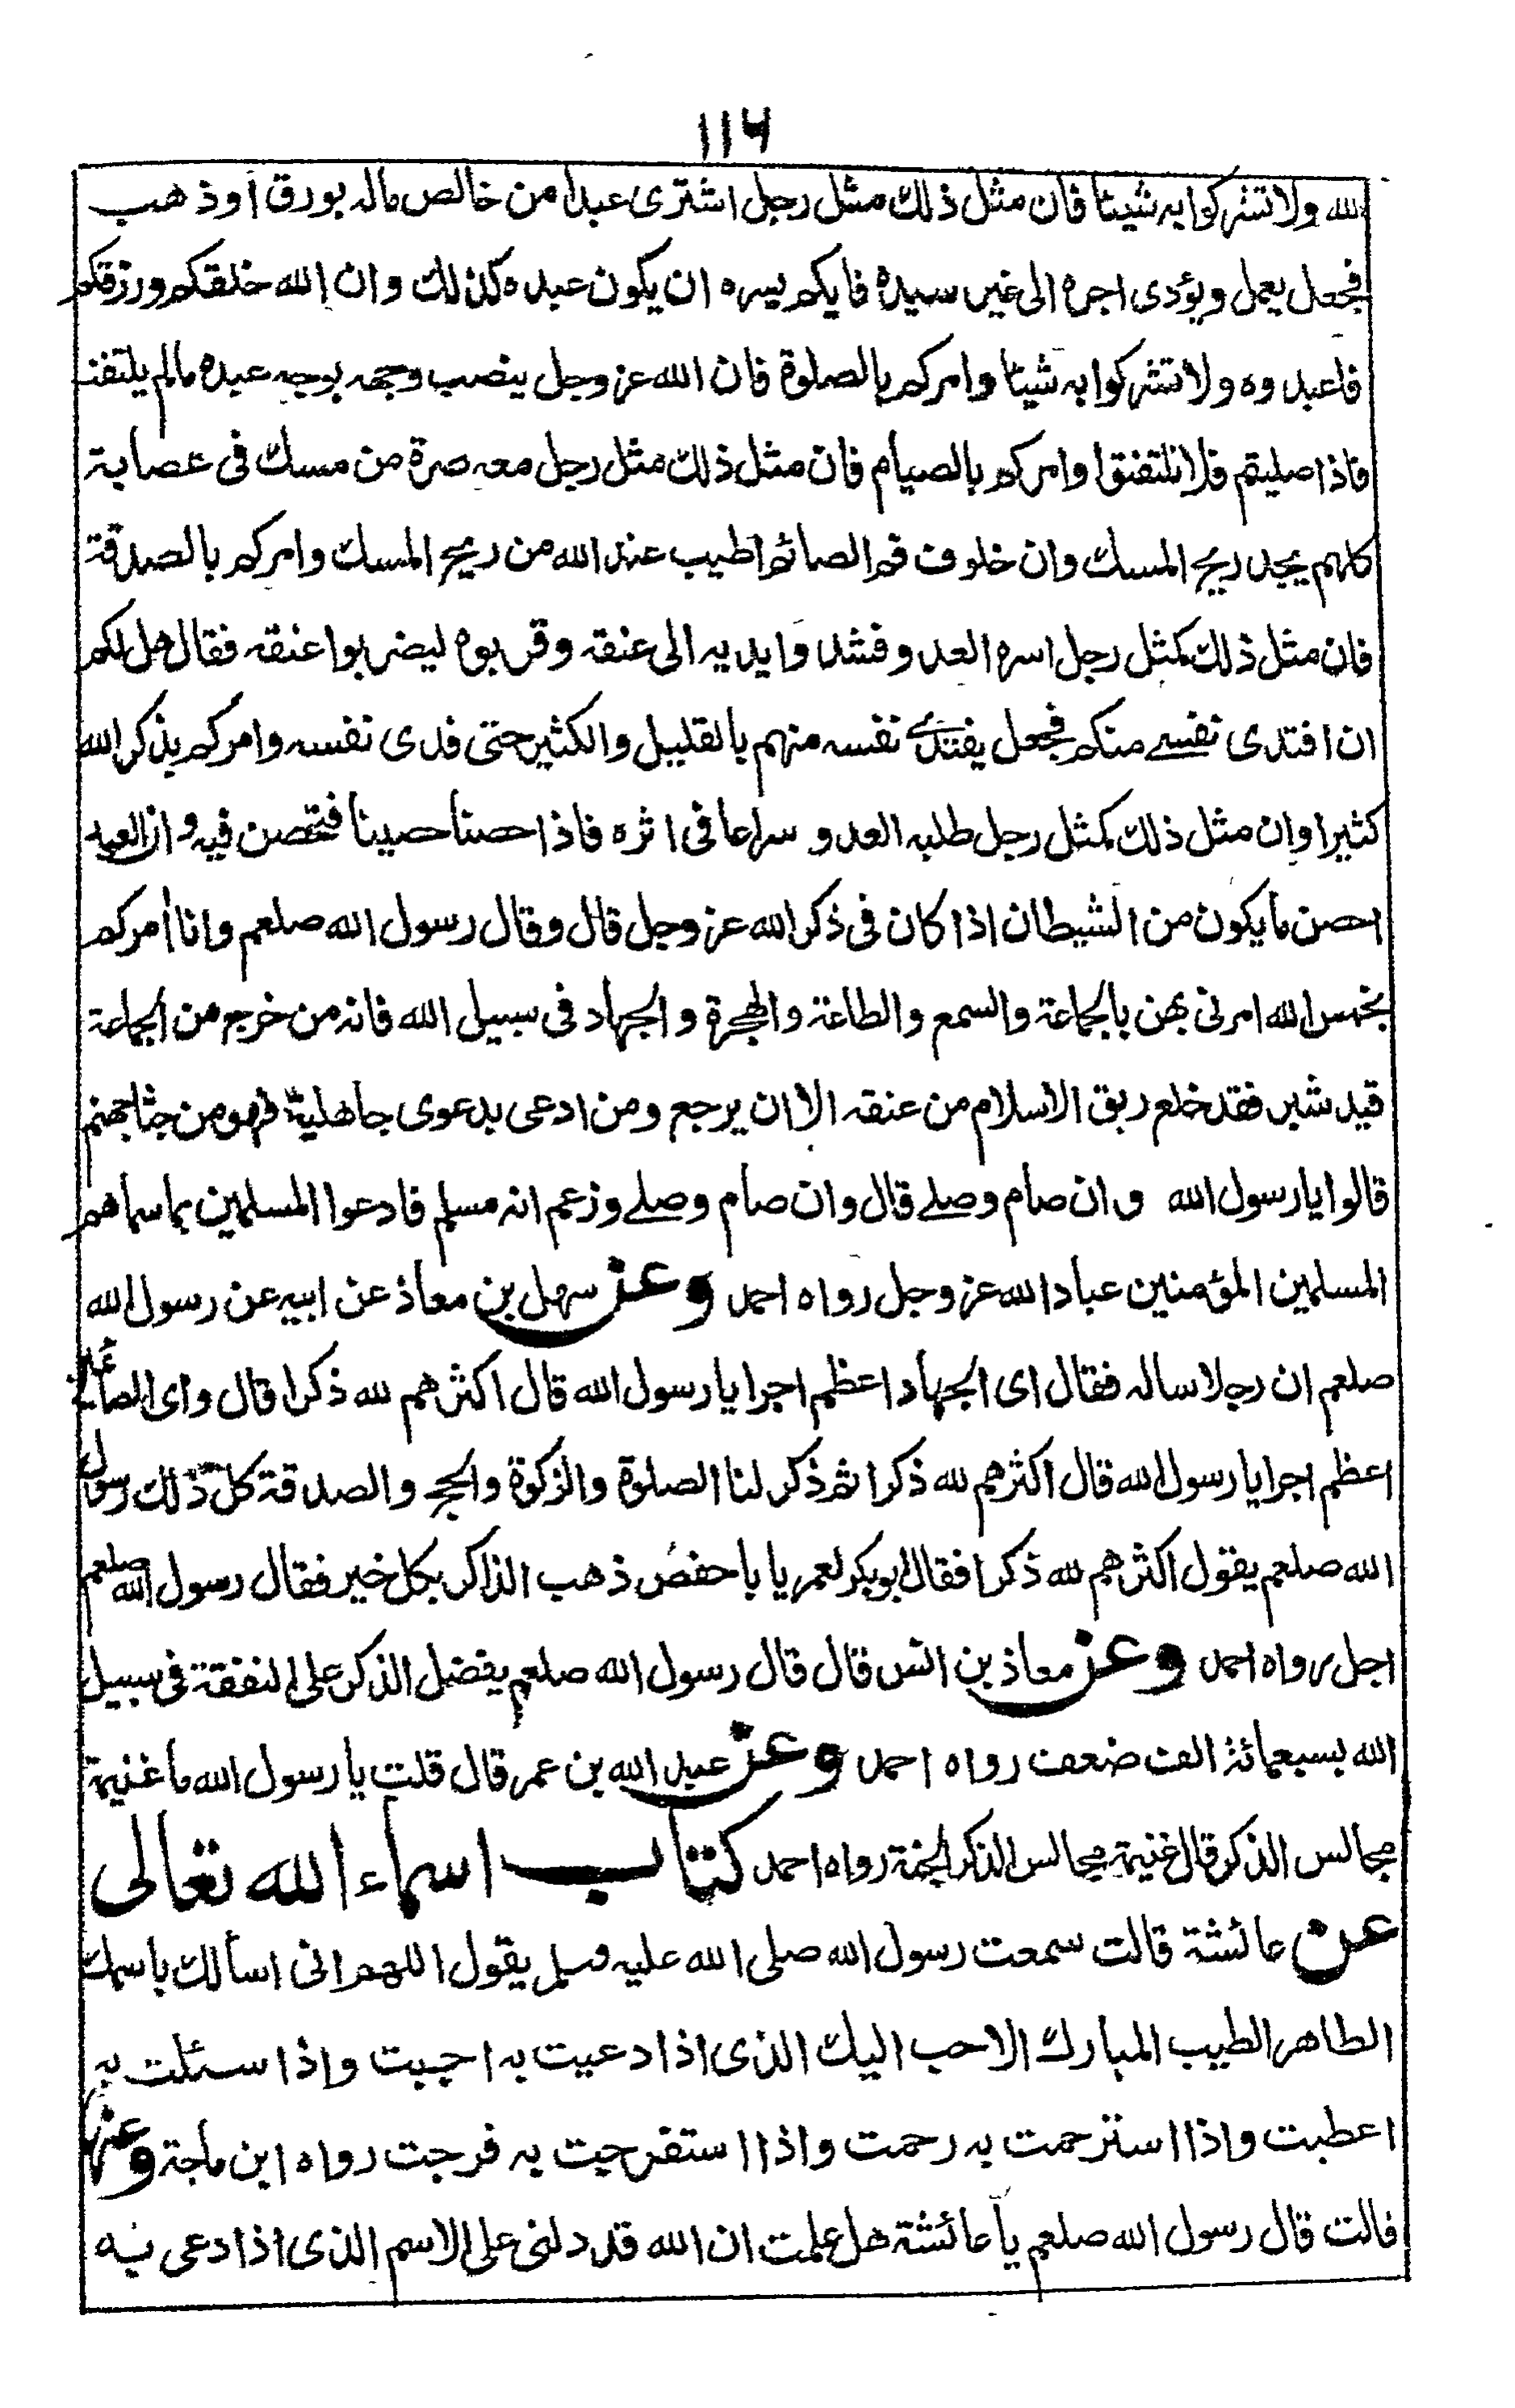 ١١٦
لله ولا تشركوا به شيئا فان مثل ذلك مثل رجل اشترى عبدا من خالص ماله بورق اوذهب
فجعل يعمل ويؤدى اجره الى غير سيده فايكم يسره ان يكون عبده كذلك وان الله خلقكم ورزقكم
فاعبدوه ولا تشركوا به شيئا وامركم بالصلوة فان الله عز وجل ينصب وجهه بوجه عبده مالم يلتفت
فاذا صليتم فلا تلتفتوا وامركم بالصيام فان مثل ذلك مثل رجل معه صرة من مسك فى عصابة
كلهم يجد ريح المسك وان خلوف فم الصائم اطيب عند الله من ريح المسك وامركم بالصدقة
فان مثل ذلك كمثل رجل اسره العدو فشدوا يديه الى عنقه وقربوه ليضربوا عنقه فقال هل لكم
ان افتدى نفسے منكم فجعل يفتدے نفسه منهم بالقليل والكثير حتى فدى نفسه وامركم بذكر الله
كثيرا وان مثل ذلك كمثل رجل طلبه العدو سراعا فى اثره فاذا حصنا حصينا فتحصن فيه وان العبد
احصن مايكون من الشيطان اذا كان فى ذكر الله عز وجل قال وقال رسول الله صلعم وانا أمركم
بخمس الله امرنى بهن بالجماعة والسمع والطاعة والهجرة والجهاد فى سبيل الله فانه من خرج من الجماعة
قيد شبر فقد خلع ربق الاسلام من عنقه الا ان يرجع ومن ادعى بدعوى جاهلية فهو من جثا جهنم
قالوا يا رسول الله وان صام وصلے قال وان صام وصلے وزعم انه مسلم فادعوا المسلمين بما سماهم
المسلمين المؤمنين عباد الله عز وجل رواه احمد وعن سهل بن معاذ عن ابيه عن رسول الله
صلعم ان رجلا ساله فقال اى الجهاد اعظم اجرا يا رسول الله قال اكثرهم لله ذكرا قال واى الصائمين
اعظم اجرا يا رسول الله قال اكثرهم لله ذكرا ثم ذكر لنا الصلوة والزكوة والحج والصدقة كل ذلك رسول
الله صلعم يقول اكثرهم لله ذكرا فقال ابو بكر لعمر يا باحفص ذهب الذاكر بكل خير فقال رسول الله صلعم
اجل رواه احمد وعن معاذ بن انس قال قال رسول الله صلعم يفضل الذكر على النفقة فى سبيل
الله بسبعمائة الف ضعف رواه احمد وعن عبد الله بن عمر قال قلت يا رسول الله ما غنيمة
مجالس الذكر قال غنيمة مجالس الذكر الجنة رواه احمد كتاب اسماء الله تعالى
عن عائشة قالت سمعت رسول الله صلى الله عليه وسلم يقول اللهم انى اسألك باسمك
الطاهر الطيب المبارك الاحب اليك الذى اذا دعيت به اجبت واذا سئلت به
اعطيت واذا استرحمت به رحمت واذا استفرجت به فرجت رواه ابن ماجة وعنها
قالت قال رسول الله صلعم يا عائشة هل علمت ان الله قد دلنى على الاسم الذى اذا دعى به